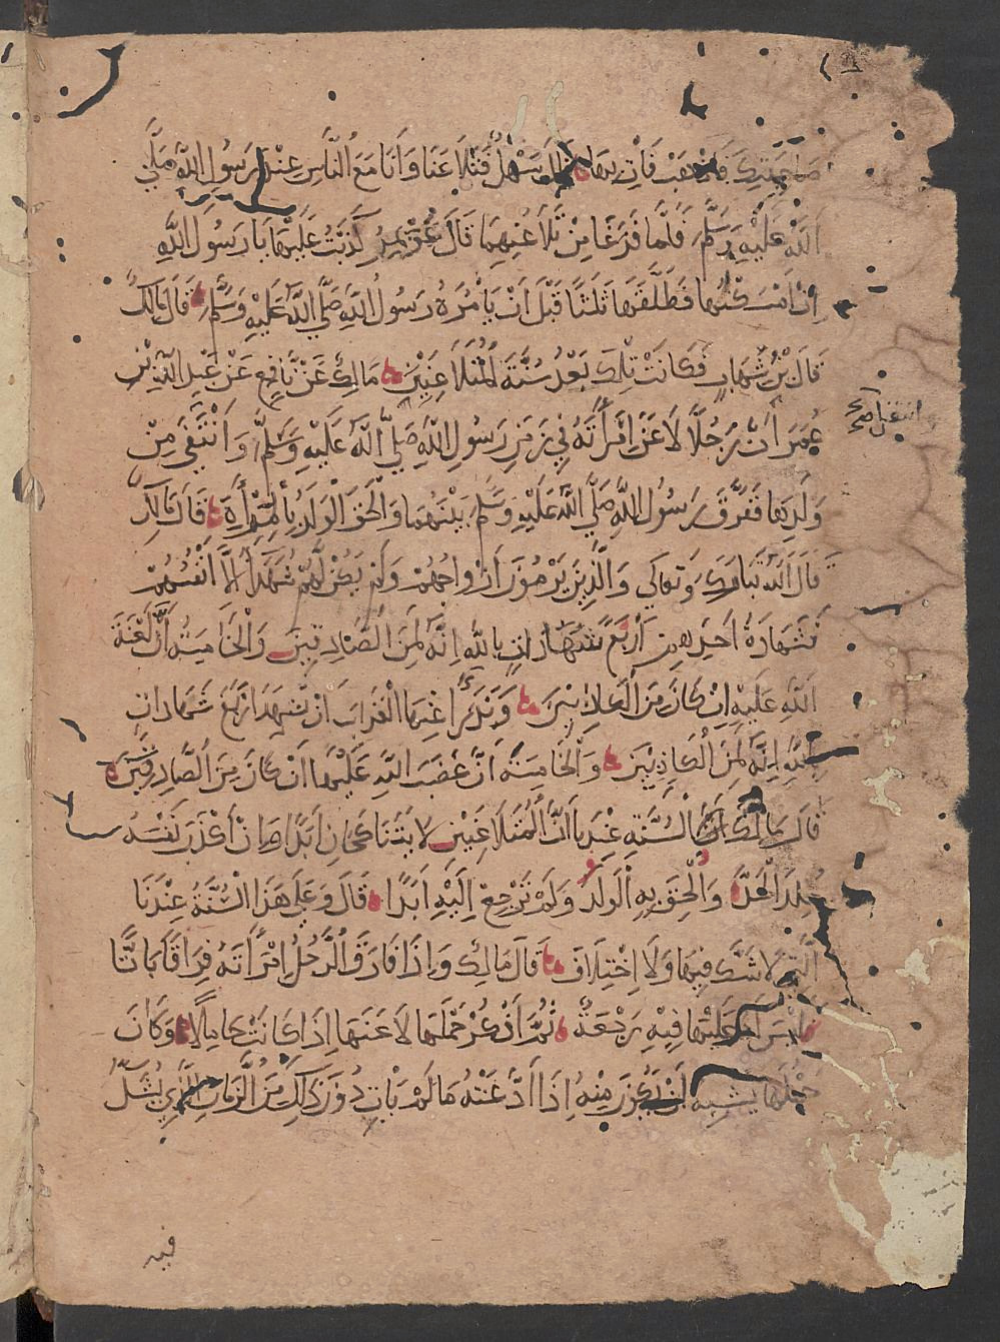 صاحبتك فاذهب فأت بها قال سهل فتلاعنا وانا مع الناس عند رسول الله صلى
الله عليه وسلم فلما فرغا من تلاعنهما قال عويمر كذبت عليها يا رسول الله
إن امسكتها فطلقها ثلثا قبل أن يأمره رسول الله صلى الله عليه وسلم قال مالك
قال بن شهاب فكانت تلك بعد سنة المتلاعنين مالك عن نافع عن عبد الله بن
عمر أن رجلا لاعن امرأته في زمن رسول الله صلى الله عليه وسلم وانتفى من
انتفل صح
ولدها ففرق رسول الله صلى الله عليه وسلم بينهما والحق الولد بالمرأة قال مالك
قال الله تبارك وتعالى والذين يرمون أزواجهم ولم يكن لهم شهداء إلا أنفسهم
فشهادة احدهم أربع شهادات بالله إنه لمن الصادقين والخامسة أن لعنة
الله عليه إن كان من الكاذبين ويدرأ عنها العذاب ان تشهد أربع شهادات
بالله إنه لمن الكاذبين والخامسة أن غضب الله عليها ان كان من الصادقين
قال مالك السنة عندنا أن المتلاعنين لا يتناكحان ابدا وان أكذب نفسه
جلد الحد والحق به الولد ولم ترجع إليه ابدا قال وعلى هذا السنة عندنا
التي لا شك فيها ولا اختلاف قال مالك وإذا فارق الرجل امرأته فراقا باتا
ليس له عليها فيه رجعة ثم أنكر حملها لاعنها إذا كانت حاملا وكان
حملها يشبه أن يكون منه إذا ادعته ما لم يأت دون ذلك من الزمان الذي يشك
فيه